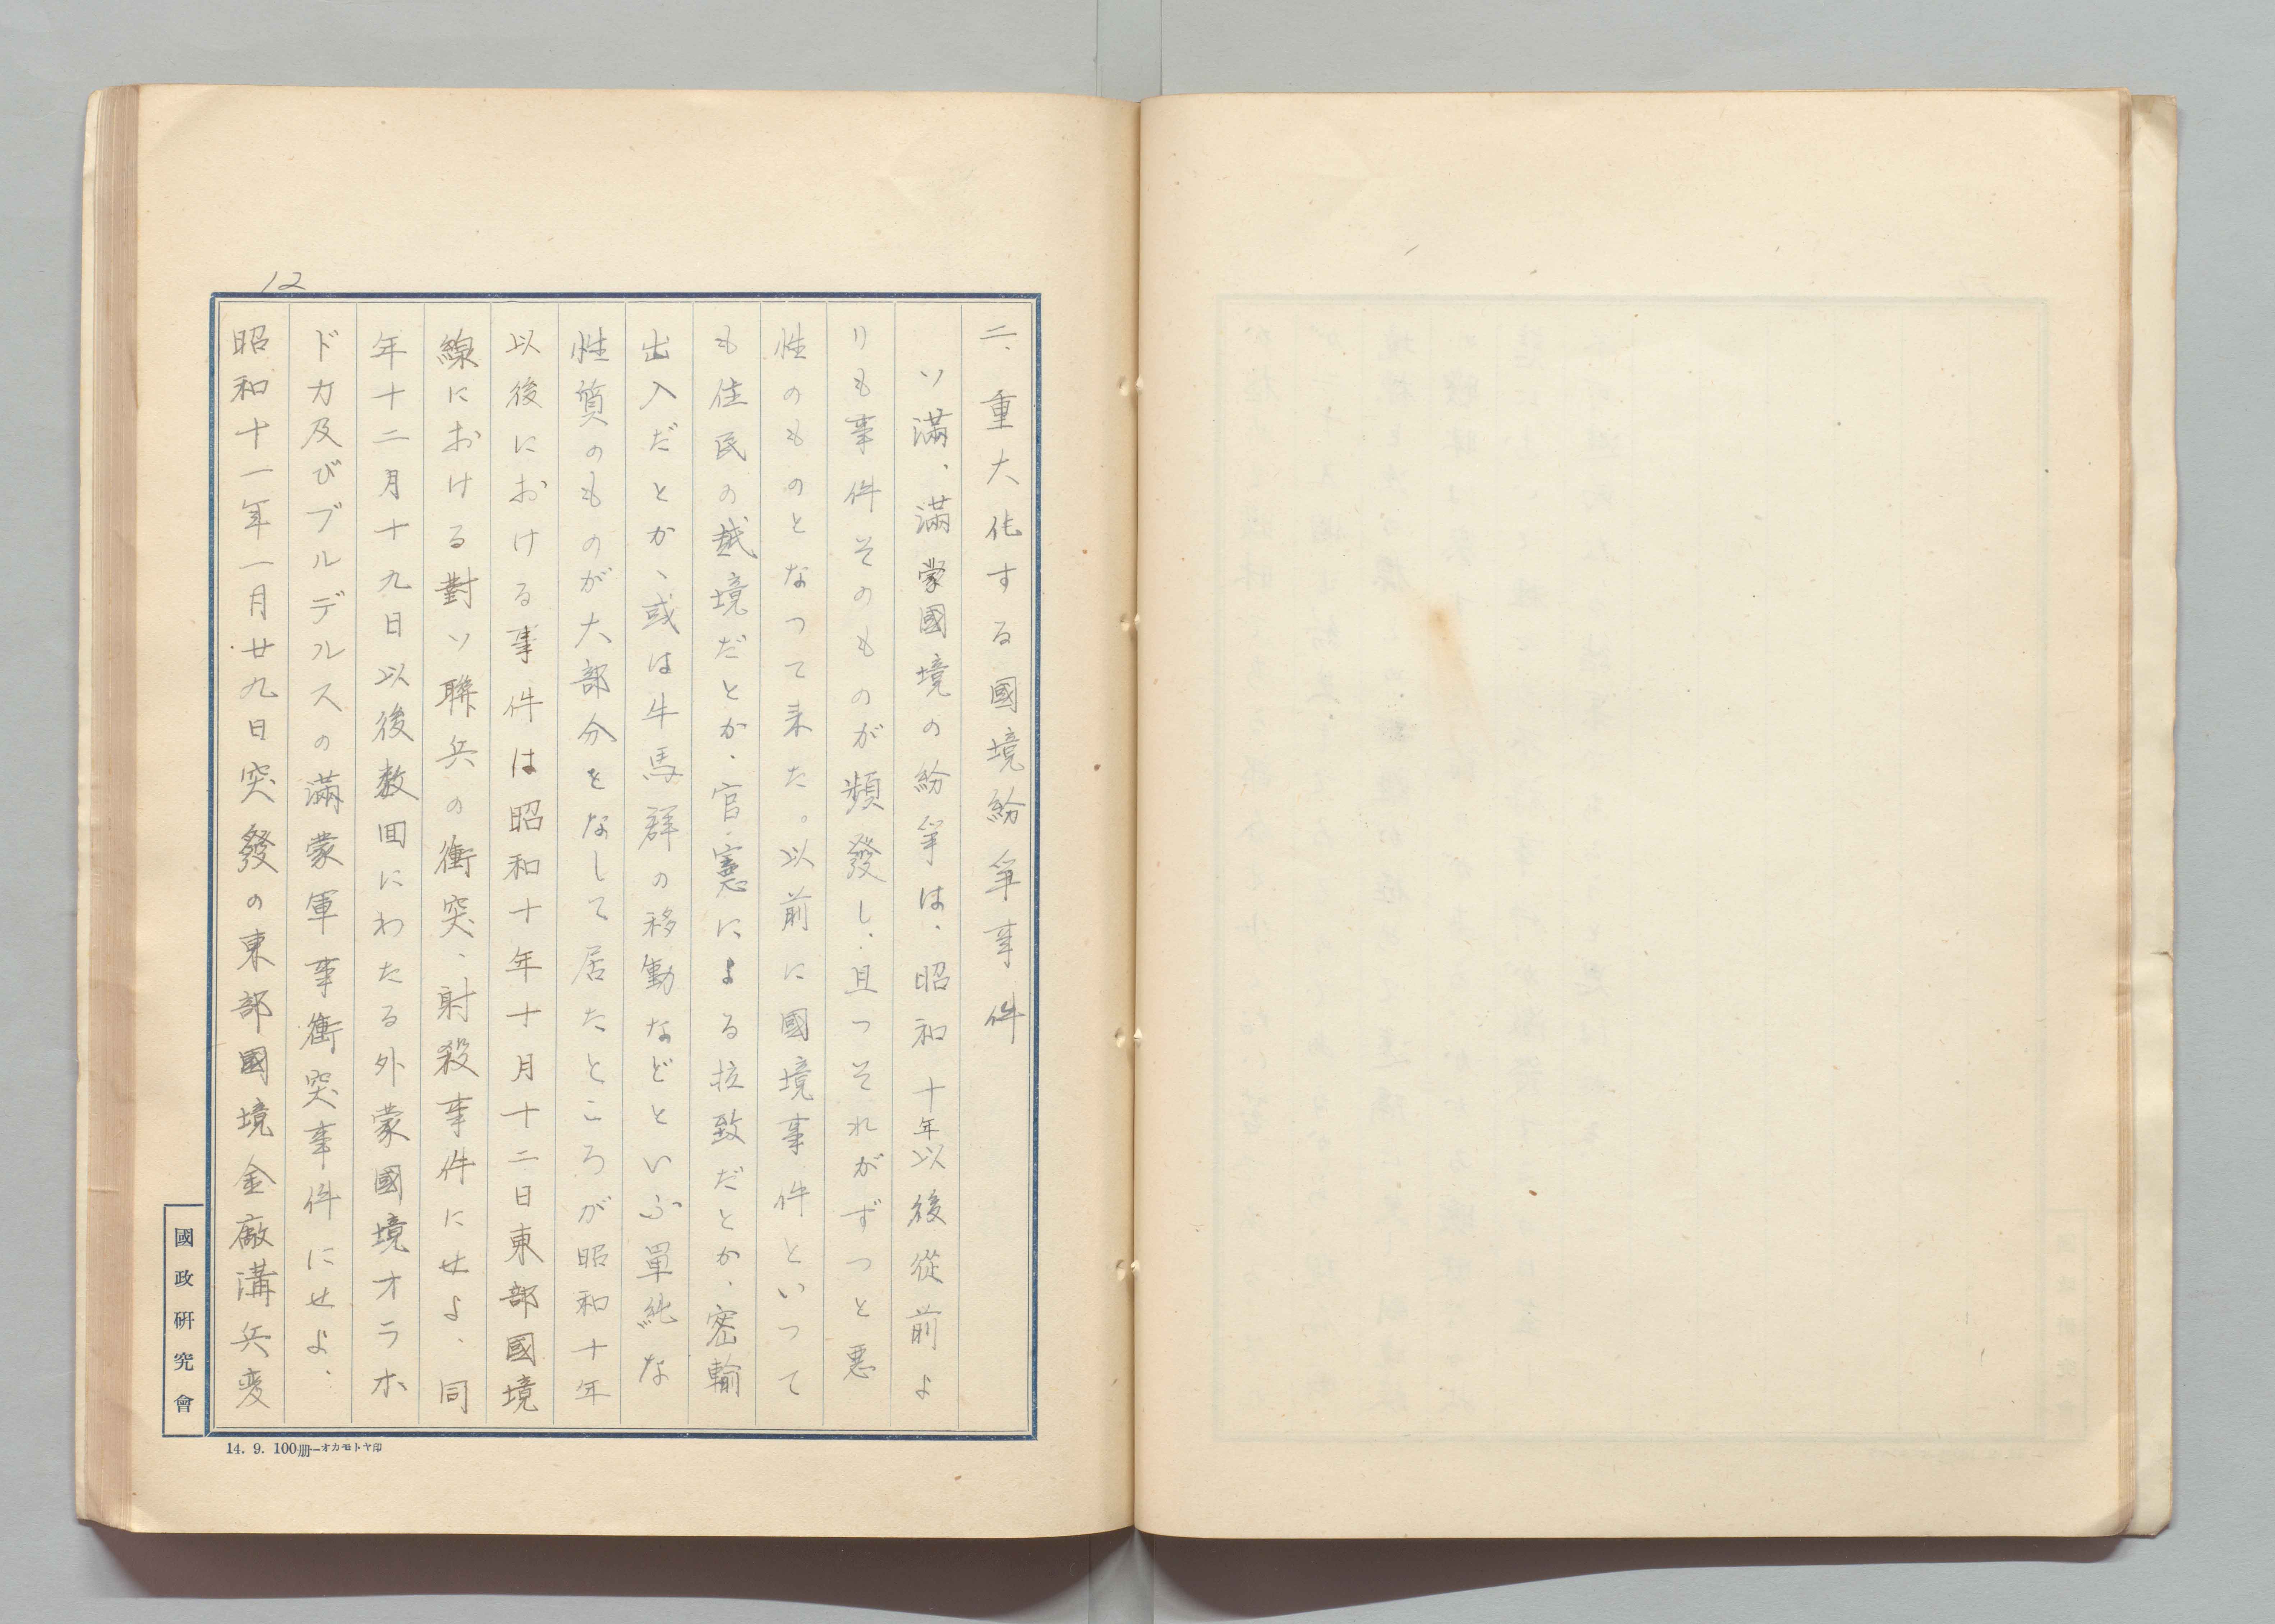 12
二、重大化する國境紛爭事件
ソ滿、滿蒙國境の紛爭は、昭和十年以後從前よ
りも事件そのものが頻發し、且つそれがずつと悪
性のものとなつて来た。以前に國境事件といつて
も住民の越境だとか、官憲による拉致だとか、密輸
出入だとか、或は牛馬群の移動などといふ單純な
性質のものが大部分をなして居たところが昭和十年
以後における事件は昭和十年十月十二日東部國境
線における對ソ聯兵の衝突、射殺事件にせよ、同
年十二月十九日以後数回にわたる外蒙國境オラホ
ドカ及びブルデルスの滿蒙軍事衝突事件にせよ、
昭和十一年一月廿九日突發の東部國境金廠溝兵変
國政硏究會
14. 9. 100册—オカモトヤ印